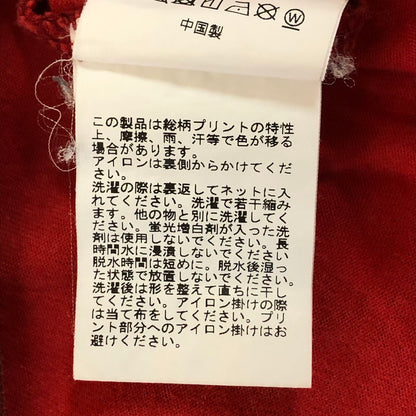 中国製
この製品は総柄プリントの特性
上、摩擦、雨、汗等で色が移る
場合があります。
アイロンは裏側からかけてくだ
さい。
洗濯の際は裏返してネットに入
れてください。洗濯で若干縮み
ます。他の物と別に洗濯してく
ださい。蛍光増白剤が入った洗
剤は使用しないでください。長
時間水に浸漬しないでください。
脱水時間は短めに。脱水後湿っ
た状態で放置しないでください。
洗濯後は形を整えて直ちに干し
てください。アイロン掛けの際
は当て布をしてください。プリ
ント部分へのアイロン掛けはお
避けください。